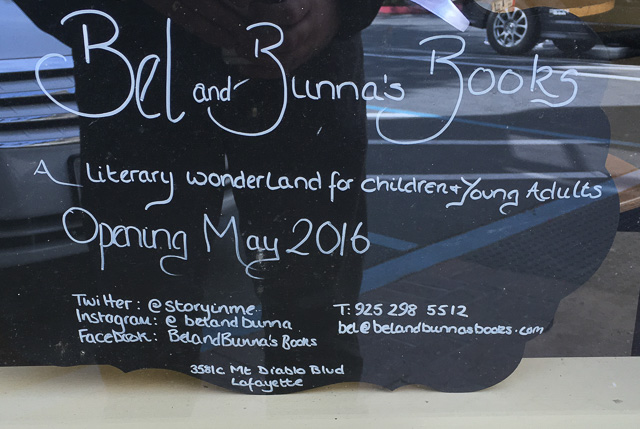 Bel and Bunna's Books
A Literary wonderland for children + Young Adults
Opening May 2016
Twitter: @storyinme
Instagram: @belandbunna
Facebook: BelandBunna's Books
T: 925 298 5512
bel@belandbunnasbooks.com
3581C Mt Diablo Blvd
Lafayette